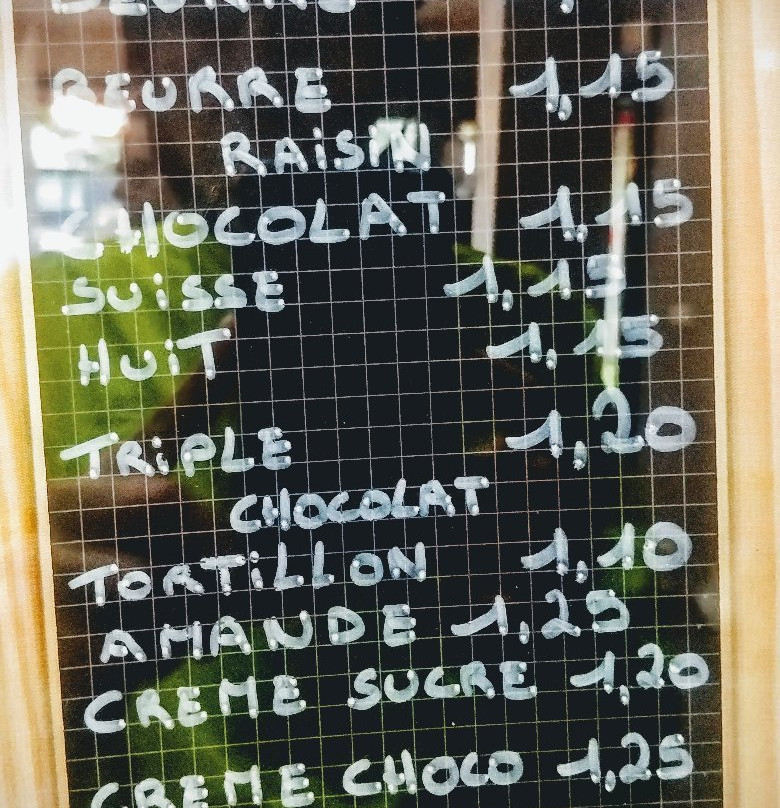 BEURRE 1,15
RAiSiN
CHOCOLAT 1,15
SUiSSE 1,15
HUiT 1,15
TRiPLE 1,20
CHOCOLAT
TORTiLLON 1,10
AMANDE 1,25
CREME SUCRE 1,20
CREME CHOCO 1,25